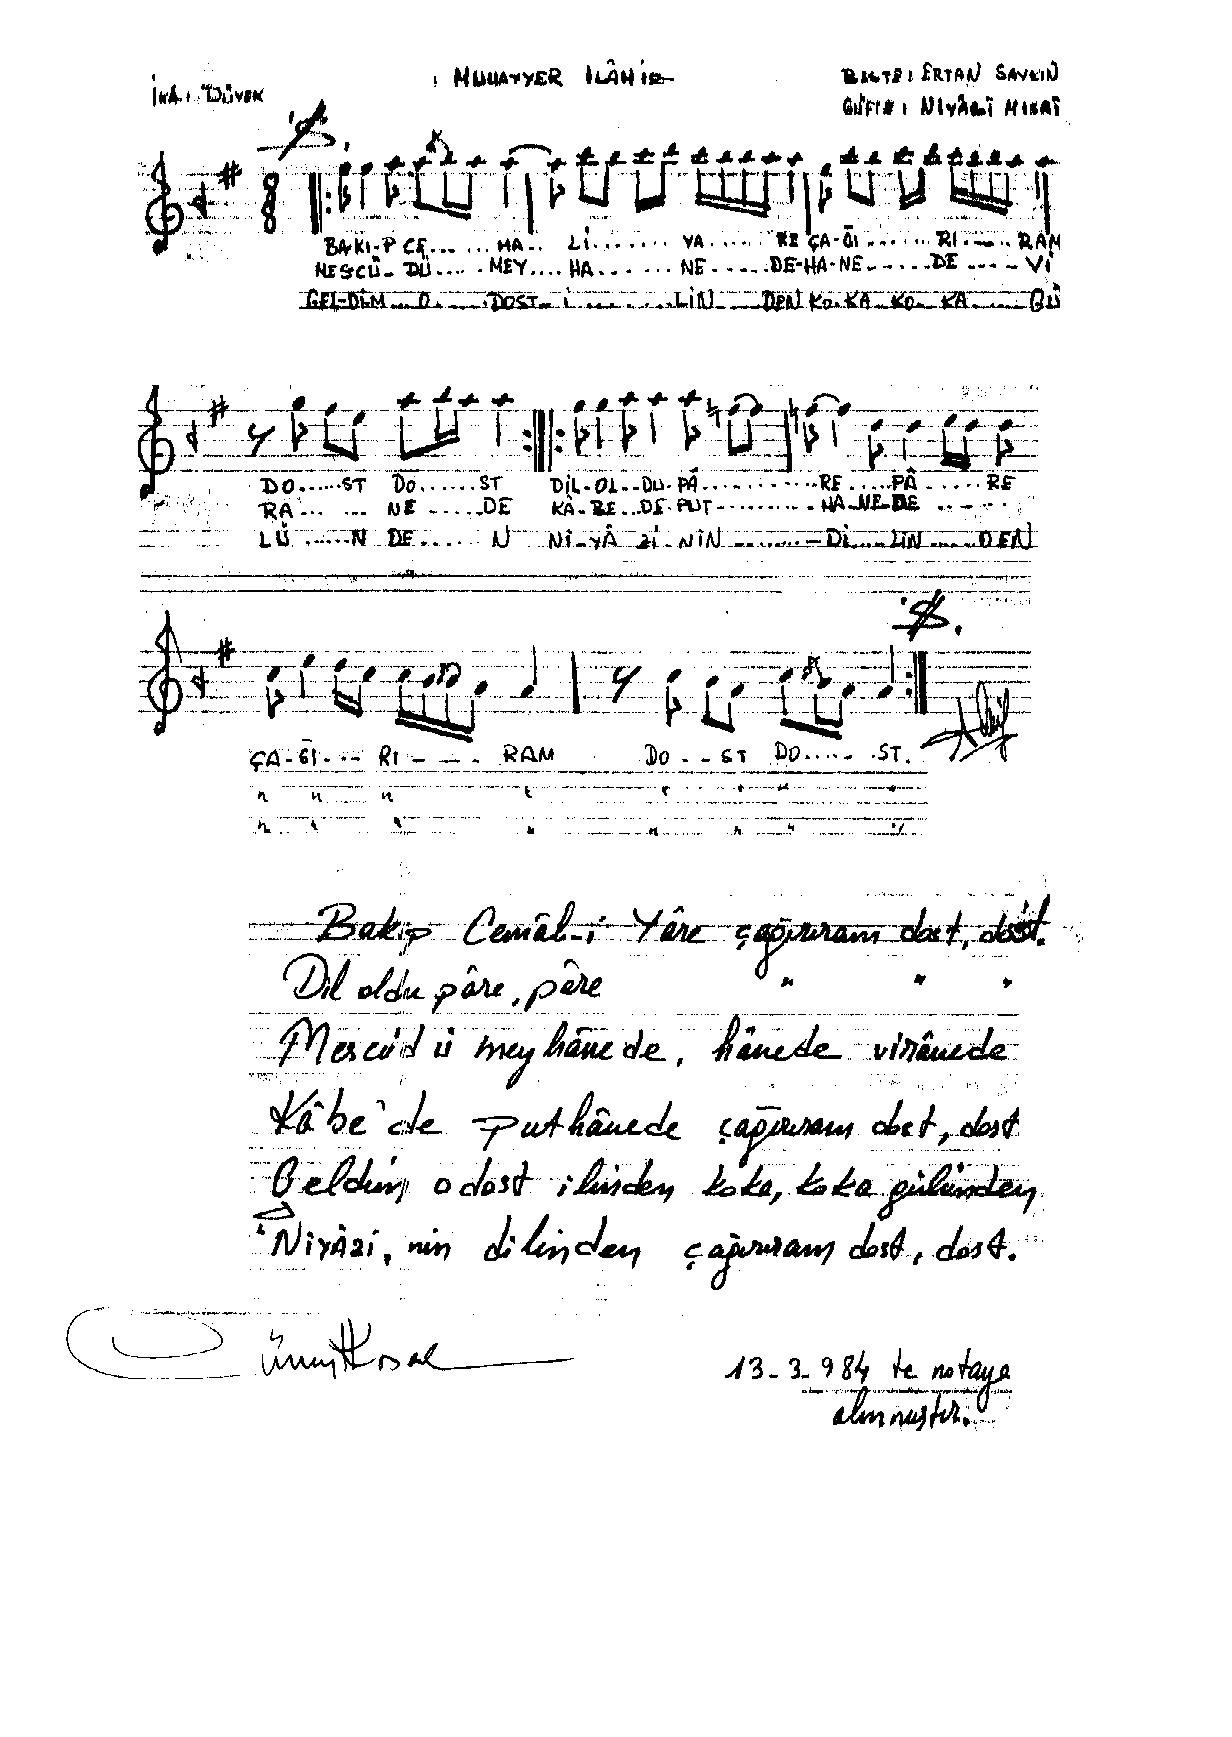 MUHAYYER İLÂHİ
BESTE: ERTAN SAVKIN
İKA: DÜYEK
GÜFTE: NİYÂZİ MISRİ
BAKI-P CE.... MA.. Lİ....... YA...... RE ÇA-ĞI....... RI-.-.. RAM
MESCÛ-DÜ.... MEY.... HA....... NE..... DE-HA-NE...... DE....-VÎ
GEL-DİM... O..... DOST-İ......... LİN.... DEN KO-KA-KO-KA..... GÜ
DO.....ST DO.....ST DİL-OL..DU-PÂ............RE....PÂ.....RE
RA... ... NE .....DE KÂ-BE..DE-PUT-.........HA-NE-DE ......
LÜ .....N DE..... N Nİ-YÂ Zİ-NİN ........-Dİ...LİN....DEN
ÇA-ĞI-... RI-.-. RAM DO..-ST DO.....ST.
Bakıp Cemâl-i Yâre çağırıram dost, dost.
Dil oldu pâre, pâre " " "
Mescûd ü meyhânede, hânede virânede
Kâbe'de puthânede çağırıram dost, dost
Geldim o dost ilinden koka, koka gülünden
Niyâzi, nin dilinden çağırıram dost, dost.
13-3-984 te notaya
alınmıştır.